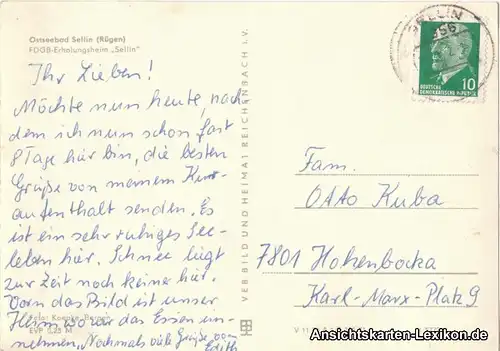 Ostseebad Sellin (Rügen)
FDGB-Erholungsheim „Sellin"
Ihr Lieben!
Möchte nun heute, nach
dem ich nun schon fast
8 Tage hier bin, die besten
Grüße von meinem Kur-
aufenthalt senden. Es
ist ein sehr ruhiges See-
leben hier. Schnee liegt
zur Zeit noch keiner hier.
Vorn das Bild ist unser
Heim, wo wir das Essen ein-
nehmen. Nochmals viele Grüße von
Edith
Foto:
EVP 0,25 M
VEB BILD UND HEIMAT REICHENBACH I. V.
SELLIN
DEUTSCHE
DEMOKRATISCHE REPUBLIK
10
Fam.
Otto Kuba
7801 Hohenbocka
Karl-Marx-Platz 9
V 11
Ansichtskarten-Lexikon.de